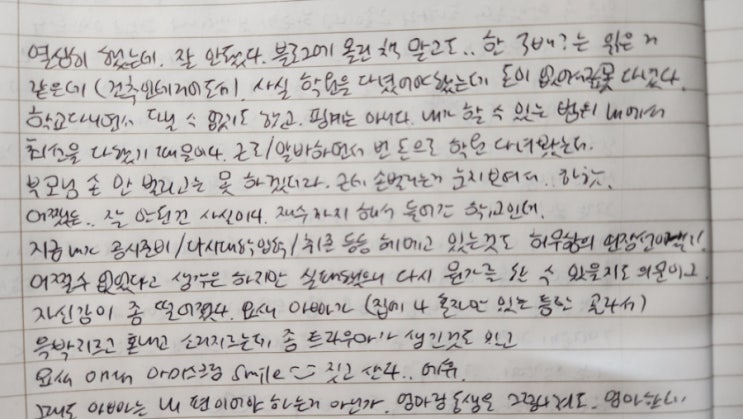 열심히 했는데. 잘 안됐다. 블로그에 올린 책 말고도.. 한 3배?는 읽은 거
같은데 (건축인테리어도서). 사실 학원을 다녔어야 했는데 돈이 없어서 못 다녔다.
학교다니면서 다닐 수 없기도 하고. 핑계는 아니다. 내가 할 수 있는 범위 내에서
최선을 다했기 때문이다. 근로/알바하면서 번 돈으로 학원 다녀봤는데.
부모님 손 안 벌리고는 못 하겠더라. 근데 손벌리는거 눈치보여서.. 하핳.
어쨌든.. 잘 안된건 사실이다. 재수까지 해서 들어간 학교인데.
지금 내가 공시준비/다시대학입학/취준 등등 헤메고 있는것도 허우적의 연장선이랄까!!
어쩔수 없었다고 생각은 하지만 실패했으니 다시 뭔가를 할 수 있을지도 의문이고.
자신감이 좀 떨어졌다. 요새 아빠가 (집에 나 혼자만 있는 틈을 골라서)
윽박지르고 혼내고 소리지르는데, 좀 트라우마가 생긴것도 있고
요새 아이스크림 smile 짓고 산다.. 에휴.
그래도 아빠는 내 편이어야 하는거 아닌가. 엄마랑 동생은 그렇다쳐도.